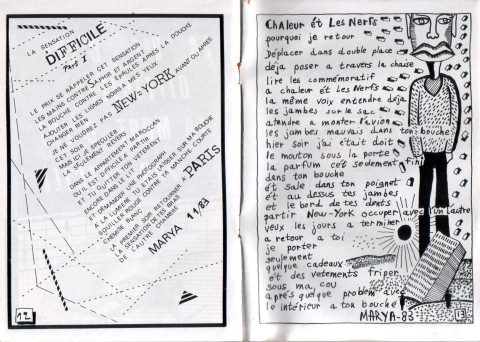 LA SENSATION
DIFFICILE
Part I
LE PRIX SE RAPPELER CET SENSATION
LES MAINS CONTRE SAPHIR ET ARGENT
LA BOUCHE CONTRE LES EPAULES APRÈS LA DOUCHE
AJOUTER LES LIGNES NOIRS A MES YEUX
CHANGER RIEN
NEW-YORK AVANT OU APRÈS
JE NE VOUDREZ PAS
CET SOIR
MAIS ICI JE SPÉCULER
LA SEULEMENT RESIRS
DANS LE APPARTEMENT MAROCCAN
QU'IL EST DIFFICILE A PARTIR
ET TU QUITTER UN VETEMENT
ENCORE DANS LE LIT
ET DEMANDER UNE PHOTOGRAPH
A LA LUMIERE, TU ÉTAIS LARGES SUR MA BOUCHE
SOUILLER ROUGE CONTRE TA MANCHE COURTE
CHEMISE BLANC
LA PREMIER SOIR RETOURNER A PARIS
DE SENSATION DETES BRAS
DE L'AUTRE CHAMBRE
MARYA 11/83
12
Chaleur ét Les Nerfs
pourquoi je retour
Déplacer dans double place
déja poser a travers la chaise
lire les commémoratif
a chaleur et Les Nerfs
la même voix entendre déja
les jambes sur le sac
atendre a monter l'avion
les jambes mauvais dans ton bouche
hier soir j'ai était doit
le mouton sous la porte
la parfum cét seulement fini
dans ton bouche
et sale dans ton poignet
et au dessus tes jambes
et le bord de tes dents
partir New-York occuper avec l'un L'autre
veux les jours a terminer
a retour a toi
je porter
seulement
quelque cadeaux
et des vetements friper
sous ma, cou
aprés quelque problem avec
le intérieur a ton bouche
MARYA-83
13